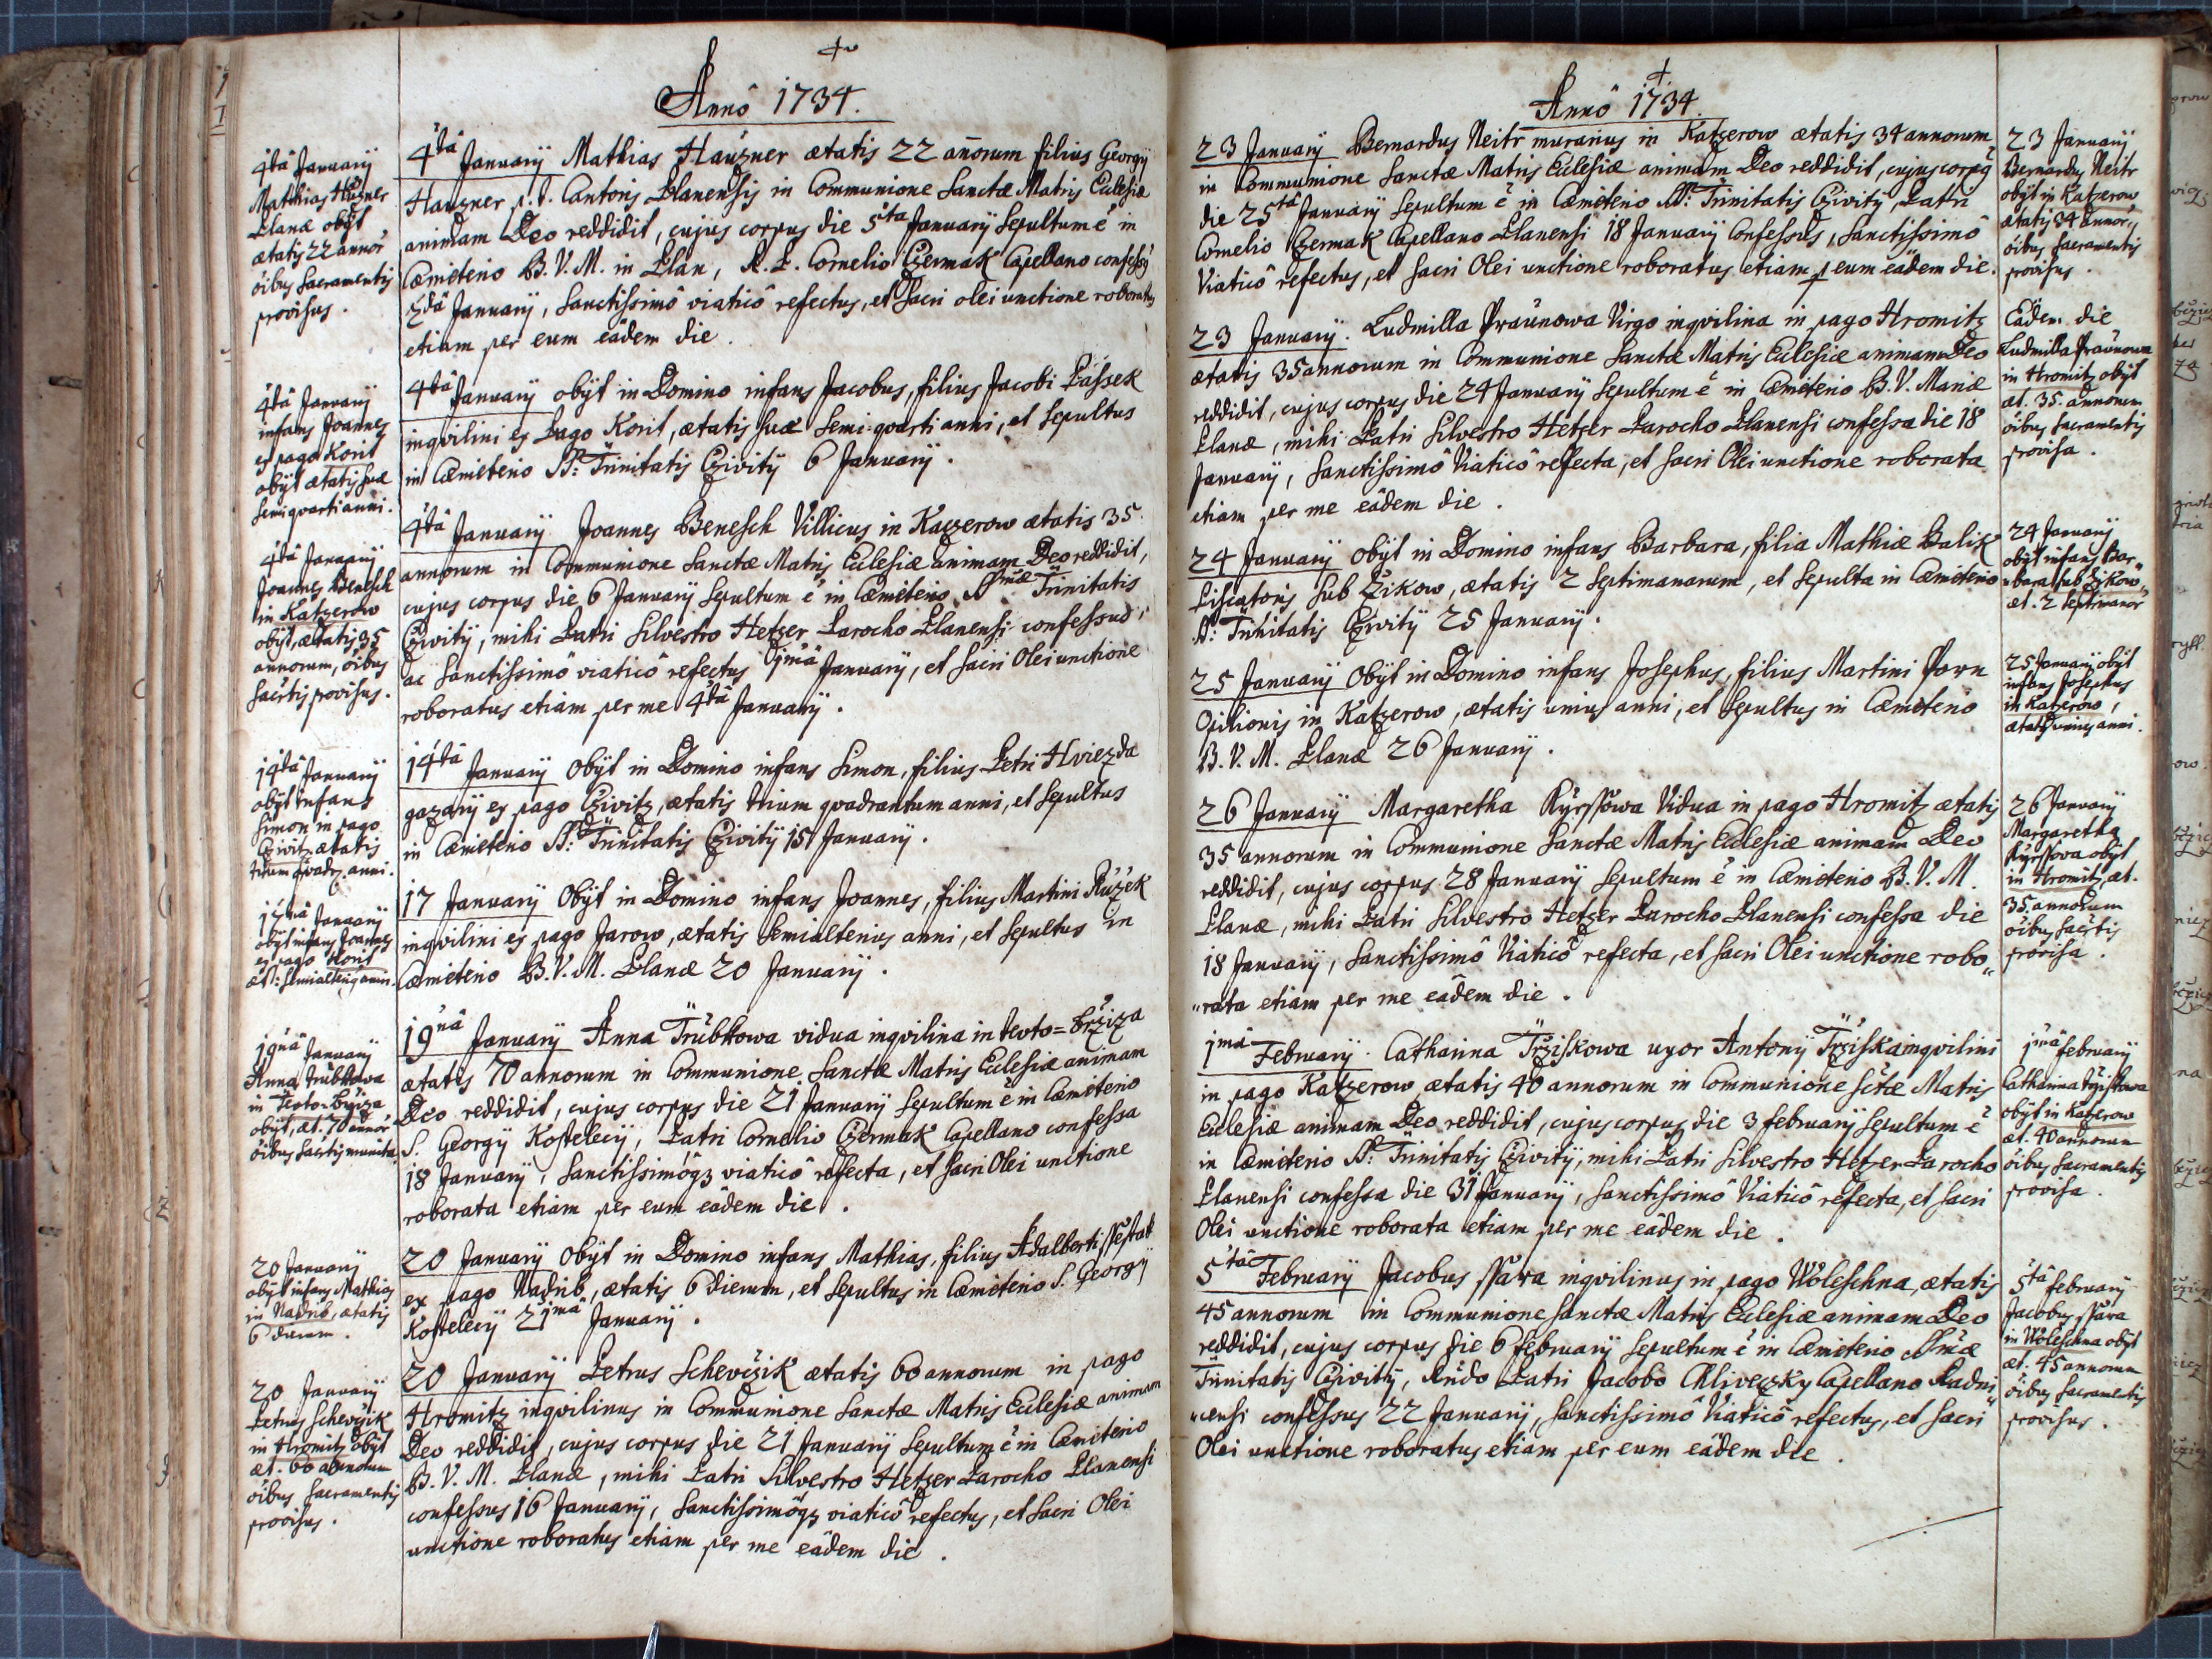 Annô 1734.
4ta Januarij
Mathias Hauzner
Planæ obijt
ætatis 22 annor
õibus Sacramentis
provisus.
4tâ Januarij Mathias Hauzner ætatis 22 annorum filius Georgij
Hauzner p. t. Cantoris Planensis in Communione Sanctæ Matris Ecclesiæ
animam Deo reddidit, cujus corpus die 5ta Januarij Sepultum ẽ in
Cæmiterio B. V. M. in Plan, R. P. Cornelio Czermak Capellano confessus
2dâ Januarij, Sanctissimô viaticô refectus, et Sacri olei unctione roboratus
etiam per eum eâdem die.
4tâ Januarij
infans Joannes
ex pago Korit
obijt ætatis suæ
semi quarti anni.
4tâ Januarij obijt in Domino infans Jacobus, filius Jacobi Passek
inqvilini ex Pago Korit, ætatis suæ Semi-qvarti anni, et Sepultus
in Cæmiterio SS: Trinitatis Czivitij 6 Januarij.
4tâ Januarij
Joannes Benesch
in Katzerow
obijt, ætatis 35
annorum, õibus
Sacrtis provisus.
4tâ Januarij Joannes Benesch Villicus in Kaczerow ætatis 35
annorum in Communione Sanctæ Matris Ecclesiæ animam Deo reddidit,
cujus corpus die 6 Januarij Sepultum ẽ in Cæmiterio SSmæ Trinitatis
Czivitij, mihi Patri Silvestro Hetzer Parocho Planensi confessus,
ac Sanctissimô viaticô refectus 1mâ Januarij, et Sacri Olei unctione
roboratus etiam per me 4tâ Januarij.
14tâ Januarij
obijt infans
Simon in pago
Czivitz ætatis
trium qvadr. anni.
14tâ Januarij Obijt in Domino infans Simon, filius Petri Hviezda
gazarij ex pago Czivitz, ætatis trium qvadrantum anni, et Sepultus
in Cæmiterio SS: Trinitatis Czivitij 15 Januarij.
17mâ Januarij
obijt infans Joannes
ex pago Korit
æt: semialterius anni.
17 Januarij Obijt in Domino infans Joannes, filius Martini Růžek
inqvilini ex pago Jarow, ætatis Semialterius anni, et Sepultus in
Cæmiterio B. V. M. Planæ 20 Januarij.
19nâ Januarij
Anna Trubkowa
in Teoto-Brziza
obijt, æt. 70 annor
õibus Sacrtis munita.
19nâ Januarij Anna Trubkowa vidua inqvilina in teoto=brziza
ætatis 70 annorum in Communione Sanctæ Matris Ecclesiæ animam
Deo reddidit, cujus corpus die 21 Januarij Sepultum ẽ in Cæmiterio
S. Georgij Kostelecij, Patri Cornelio Czermak Capellano confessa
18 Januarij, Sanctissimôqz viaticô refecta, et Sacri Olei unctione
roborata etiam per eum eâdem die.
20 Januarij
obijt infans Mathias
in Nadrib, ætatis
6 dierum.
20 Januarij Obijt in Domino infans Mathias, filius Adalberti ssestak
ex pago Nadrib, ætatis 6 dierum, et Sepultus in Cæmiterio S. Georgij
Kostelecij 21mâ Januarij.
20 Januarij
Petrus Schevčzik
in Hromitz obijt
æt. 60 annorum
õibus Sacramentis
provisus.
20 Januarij Petrus Schevčzik ætatis 60 annorum in pago
Hromitz inqvilinus in Communione Sanctæ Matris Ecclesiæ animam
Deo reddidit, cujus corpus die 21 Januarij Sepultum ẽ in Cæmiterio
B. V. M. Planæ, mihi Patri Silvestro Hetzer Parocho Planensi
confessus 16 Januarij, Sanctissimôqz viaticô refectus, et Sacri Olei
unctione roboratus etiam per me eâdem die.
Annô 1734.
23 Januarij Bernardus Neitr murarius in Katzerow ætatis 34 annorum
in Communione Sanctæ Matris Ecclesiæ animam Deo reddidit, cujus corpq
die 25tâ Januarij Sepultum ẽ in Cæmiterio SS: Trinitatis Czivitij, Patri
Cornelio Czermak Capellano Planensi 18 Januarij Confessus, Sanctissimô
Viaticô refectus, et Sacri Olei unctione roboratus etiam p eum eâdem die.
23 Januarij
Bernardus Neitr
obijt in Katzerow
ætatis 34 annor,
õibus Sacramentis
provisus.
23 Januarij. Ludmilla Praunowa Virgo inqvilina in pago Hromitz
ætatis 35 annorum in Communione Sanctæ Matris Ecclesiæ animam Deo
reddidit, cujus corpus die 24 Januarij Sepultum ẽ in Cæmiterio B. V. Mariæ
Planæ, mihi Patri Silvestro Hetzer Parocho Planensi confessa die 18
Januarij, Sanctissimô Viaticô refecta, et Sacri Olei unctione roborata
etiam per me eâdem die.
Eâdem die
Ludmilla Praunowa
in Hromitz obijt
æt. 35. annorum
õibus Sacramentis
provisa.
24 Januarij Obijt in Domino infans Barbara, filia Mathiæ Balik
Piscatoris Sub Zikow, ætatis 2 Septimanarum, et Sepulta in Cæmiterio
SS: Trinitatis Czivitij 25 Januarij.
24 Januarij
obijt infans Bar-
bara sub Zikow,
æt. 2 Septimanor
25 Januarij Obijt in Domino infans Josephus, filius Martini Porn
Opilionis in Katzerow, ætatis unius anni, et Sepultus in Cæmiterio
B. V. M. Planæ 26 Januarij.
25 Januarij obijt
infans Josephus
in Katzerow,
ætatis unius anni.
26 Januarij Margaretha Ryrssowa Vidua in pago Hromitz ætatis
35 annorum in Communione Sanctæ Matris Ecclesiæ animam Deo
reddidit, cujus corpus 28 Januarij Sepultum ẽ in Cæmiterio B. V. M.
Planæ, mihi Patri Silvestro Hetzer Parocho Planensi confessa die
18 Januarij, Sanctissimô Viaticô refecta, et Sacri Olei unctione robo„
„rata etiam per me eâdem die.
26 Januarij
Margaretha
Ryrssova obijt
in Hromitz, æt.
35. annorum
õibus Sacrtis
provisa.
1mâ Februarij. Catharina Trziskowa uxor Antonij Trziska inqvilini
in pago Katzerow ætatis 40 annorum in Communione Sctæ Matris
Ecclesiæ animam Deo reddidit, cujus corpus die 3 februarij Sepultum ẽ
in Cæmiterio SS: Trinitatis Czivitij, mihi Patri Silvestro Hetzer Parocho
Planensi confessa die 31 Januarij, Sanctissimô Viaticô refecta, et Sacri
Olei unctione roborata etiam per me eâdem die.
1mâ februarij
Catharina Trziskowa
obijt in Katzerow
æt. 40 annorum
õibus Sacramentis
provisa.
5tâ Februarij Jacobus ssára inqvilinus in pago Woleschna, ætatis
45 annorum in Communione Sanctæ Matris Ecclesiæ animam Deo
reddidit, cujus corpus die 6 februarij Sepultum ẽ in Cæmiterio SSmæ
Trinitatis Czivitij, Rndo Patri Jacobo Chliveczky Capellano Radni„
„censi confessus 22 Januarij, Sanctissimô Viaticô refectus, et Sacri
Olei unctione roboratus etiam per eum eâdem die.
5tâ februarij
Jacobus ssára
in Woleschna obijt
æt. 45 annorum
õibus Sacramentis
provisus.